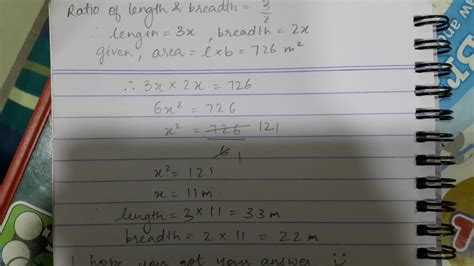 Ratio of length & breadth = 3/2
∴ length = 3x , breadth = 2x
given, area = l × b = 726 m²
∴ 3x × 2x = 726
6x² = 726
x² = 726/6 121/1
x² = 121
x = 11m.
length = 3 × 11 = 33 m
breadth = 2 × 11 = 22 m
I hope you got your answer